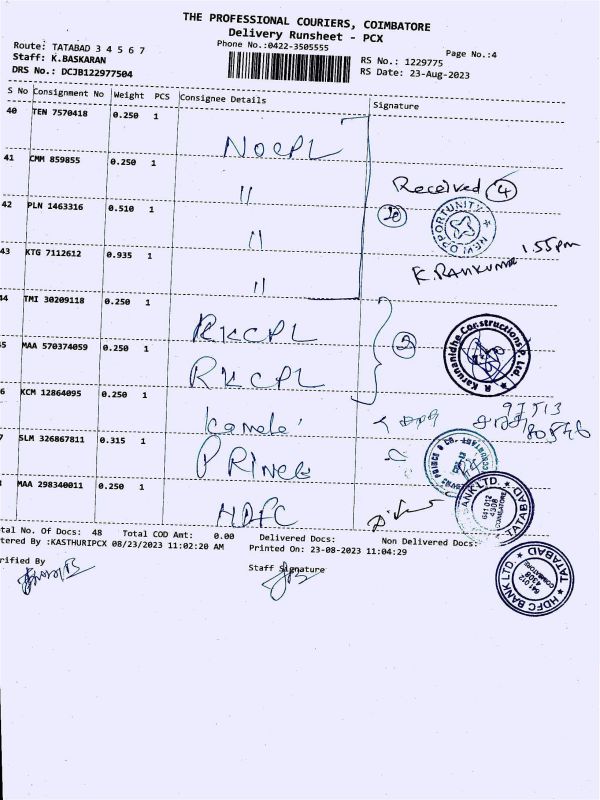 THE PROFESSIONAL COURIERS, COIMBATORE
Delivery Runsheet - PCX
Phone No.:0422-3505555
Page No.:4
Route: TATABAD 3 4 5 6 7
Staff: K.BASKARAN
DRS No.: DCJB122977504
RS No.: 1229775
RS Date: 23-Aug-2023
S No Consignment No Weight PCS Consignee Details Signature
40 TEN 7570418 0.250 1 NOCPL
41 CMM 859855 0.250 1 "
Received 4
42 PLN 1463316 0.510 1 "
NEW OPPORTUNITY
1.55pm
43 KTG 7112612 0.935 1 "
44 TMI 30209118 0.250 1 RKCPL
2
R. Karunanidhe Constructions P. Ltd.
5 MAA 570374059 0.250 1 RKCPL
6 KCM 12864095 0.250 1 Kamala
97513
80546
7 SLM 326867811 0.315 1 PRINCE
PRINCE & CO.
MAA 298340011 0.250 1 HDFC
BANK LTD. TATABAD
641 012
4308
COIMBATORE
tal No. Of Docs: 48 Total COD Amt: 0.00 Delivered Docs: Non Delivered Docs:
tered By :KASTHURIPCX 08/23/2023 11:02:20 AM Printed On: 23-08-2023 11:04:29
rified By Staff Signature
HDFC BANK LTD. TATABAD
641 012
4308
COIMBATORE